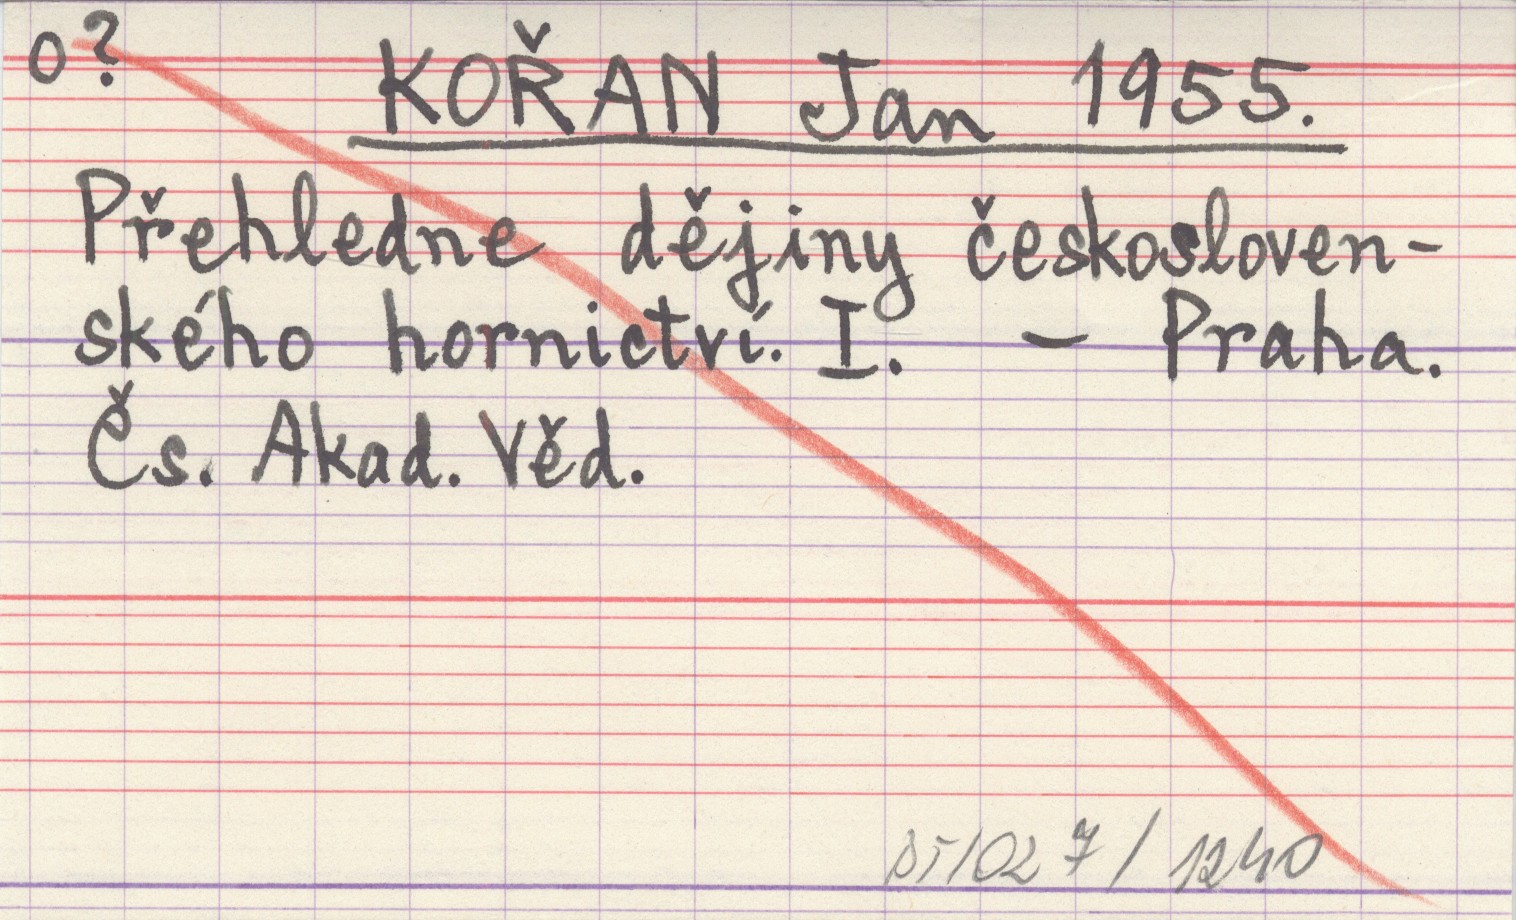 o?
KOŘAN Jan 1955.
Přehledne dějiny českosloven-
ského hornictví. I. - Praha.
Čs. Akad. Věd.
/ 1240